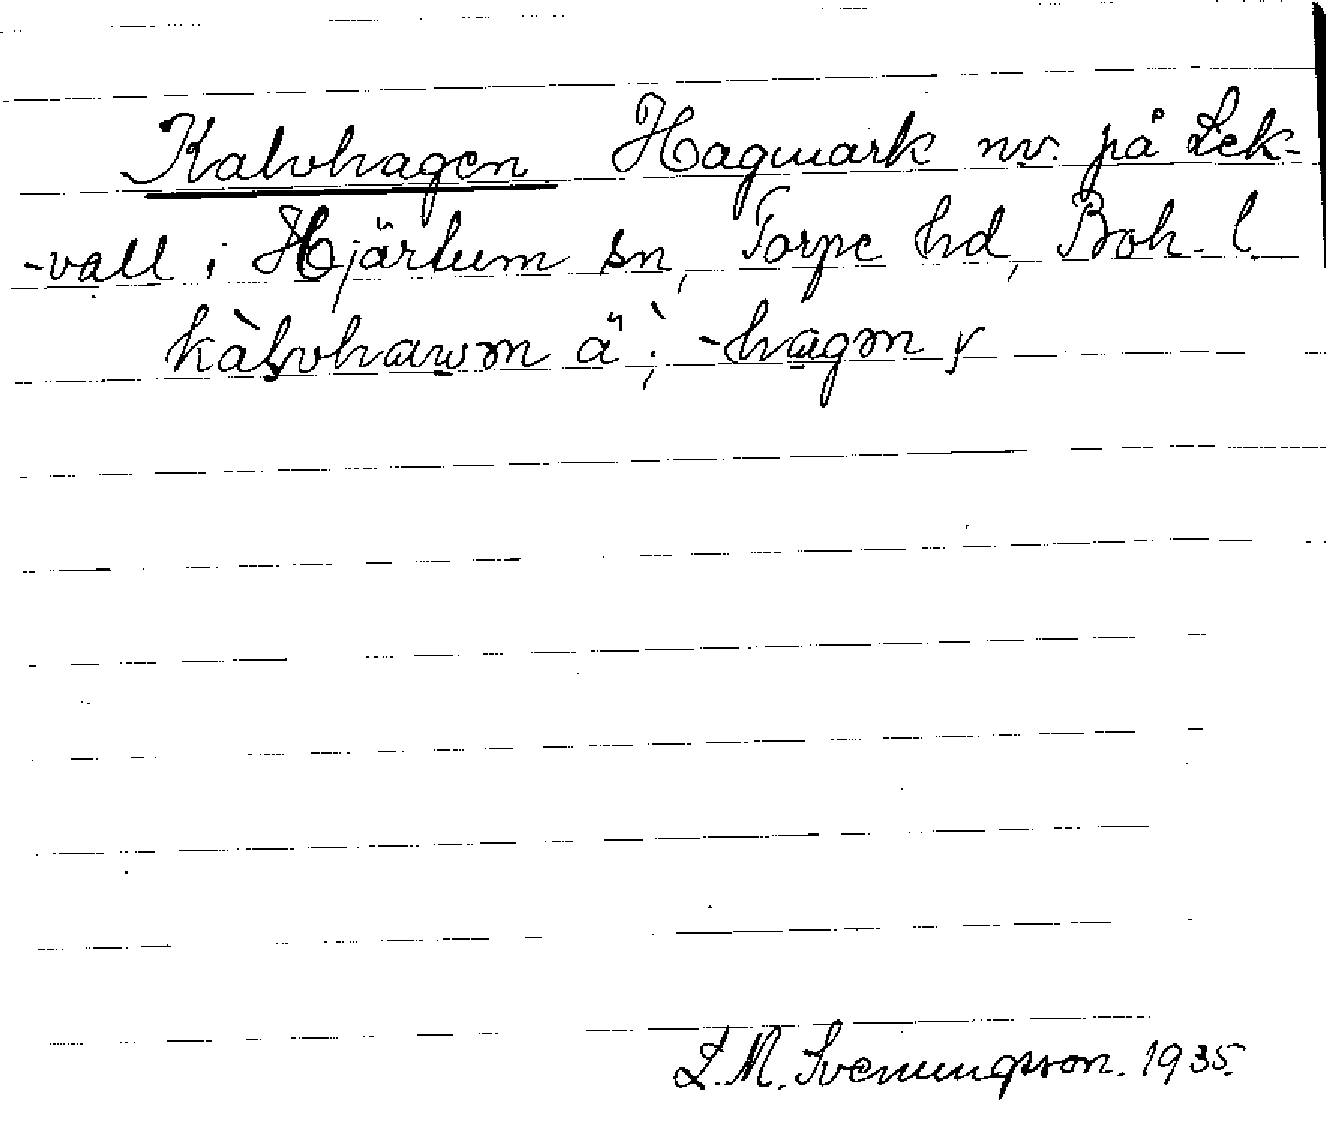 Kalvhagen Hagmark nv. på Lek-
-vall i Hjärtum sn, Torpe hd, Boh. l.
kàlvhawən ä`; -hagən y
L.M. Svenungsson. 1935.